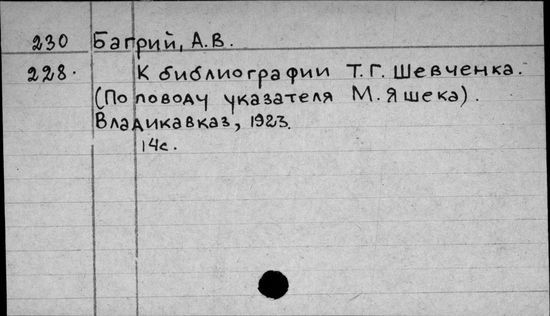 230 Багрий, А.В.
228. К библиографии Т.Г. Шевченка.
(По поводу указателя М. Яшека).
Владикавказ, 1923.
14с.